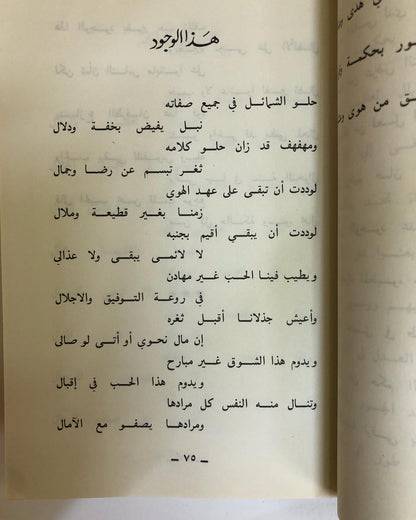 هذا الوجود
حلو الشمائل في جميع صفاته
نبل يفيض بخفة ودلال
ومهفهف قد زان حلو كلامه
ثغر تبسم عن رضا وجمال
لوددت أن تبقى على عهد الهوي
زمنا بغير قطيعة وملال
لوددت أن يبقي أقيم بجنبه
لا لائمى يبقى ولا عذالي
ويطيب فينا الحب غير مهادن
في روعة التوفيق والاجلال
وأعيش جذلانا أقبل ثغره
إن مال نحوي أو أتى لو صالى
ويدوم هذا الشوق غير مبارح
ويدوم هذا الحب في إقبال
وتنال منه النفس كل مرادها
ومرادها يصفو مع الآمال
– ٧٥ –